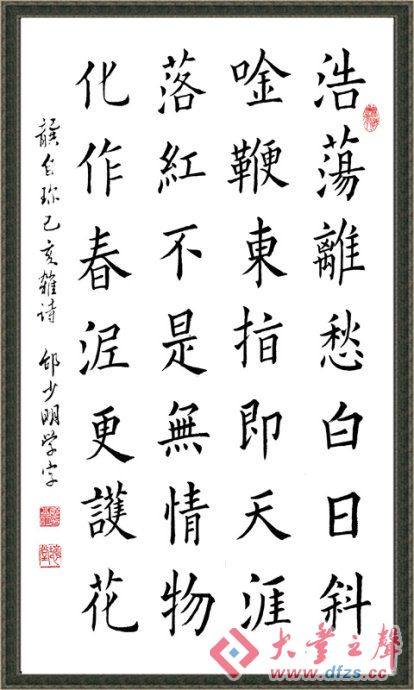 浩蕩離愁白日斜
唫鞭東指即天涯
落紅不是無情物
化作春泥更護花
龔自珍己亥雜诗 邰少明学字
之聲
www.dfzs.com